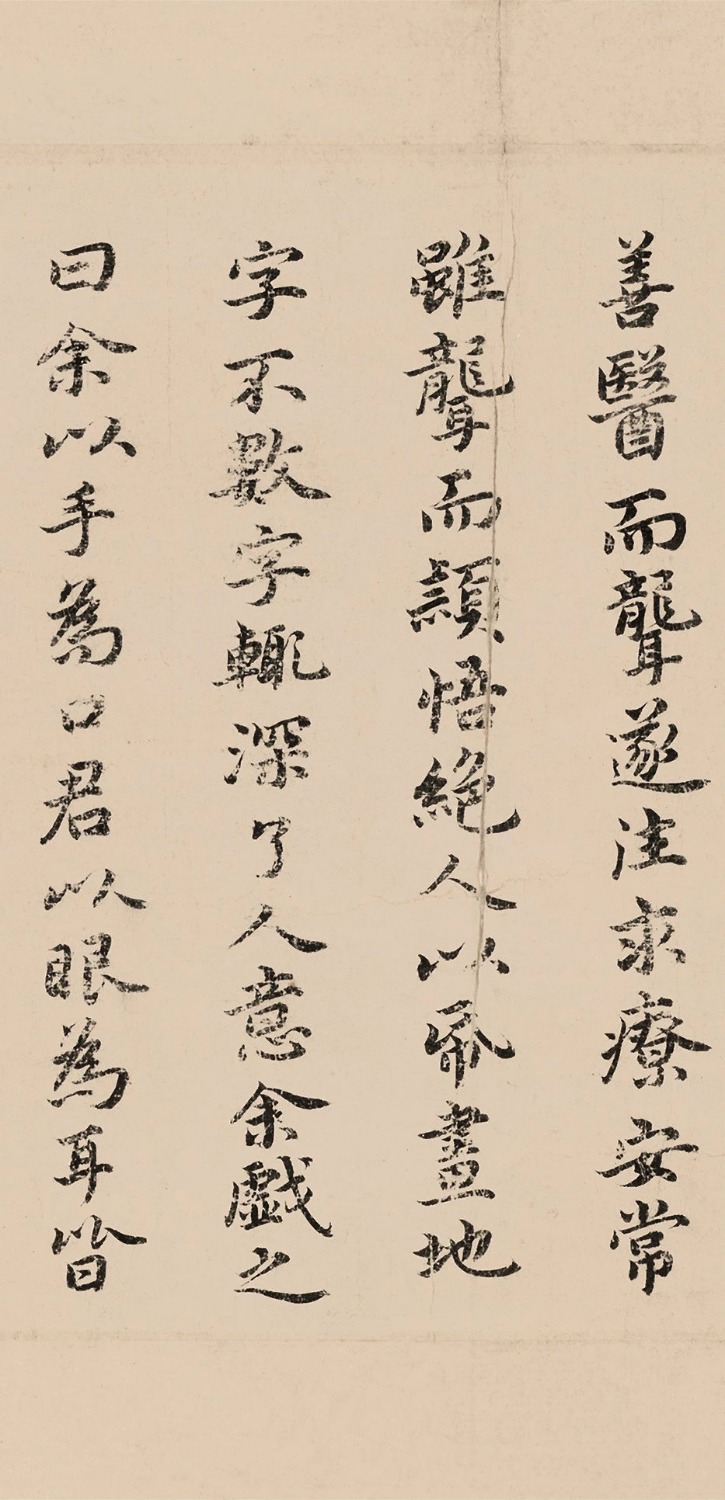 善醫而聾遂往求療安常
雖聾而穎悟絕人以紙畫地
字不數字輒深了人意余戲之
曰余以手為口君以眼為耳皆